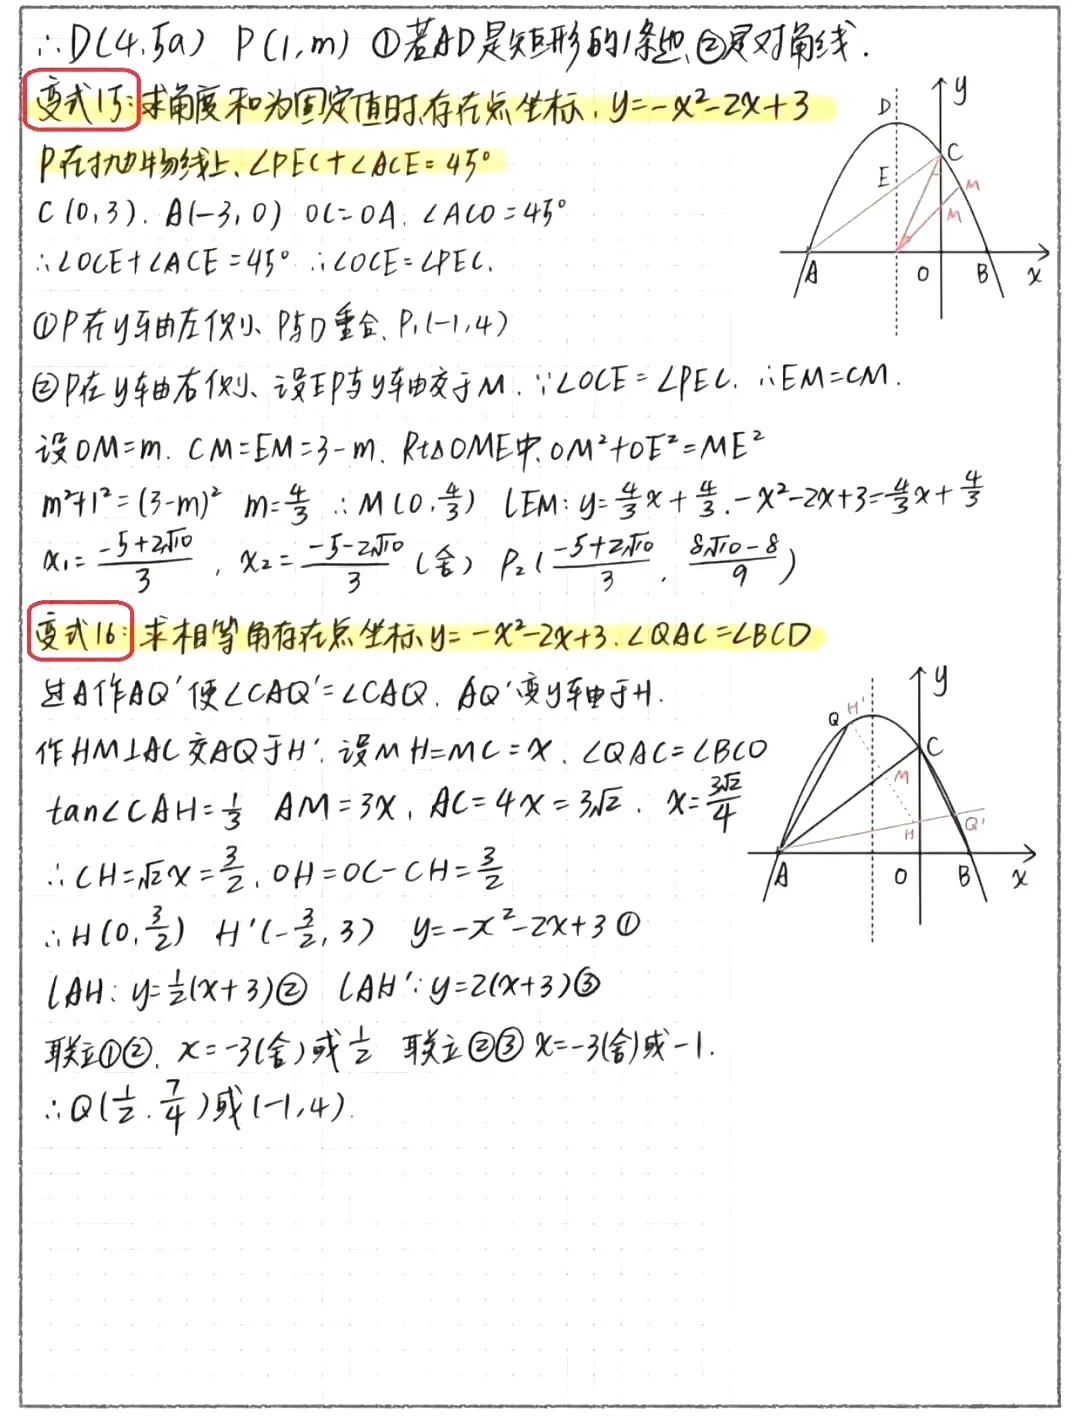 ∴D(4,5a) P(1,m) ①若AD是矩形的1条边、②是对角线.
变式15:求角度和为固定值时,存在点坐标, y=-x²-2x+3
P在抛物线上、∠PEC+∠ACE=45°
C(0,3). A(-3,0) OC=OA. ∠ACO=45°
∴∠OCE+∠ACE=45° ∴∠OCE=∠PEC.
①P在y轴左侧、P与D重合、P₁(-1,4)
②P在y轴右侧、设EP与y轴交于M. ∵∠OCE=∠PEC. ∴EM=CM.
设OM=m. CM=EM=3-m. Rt△OME中.OM²+OE²=ME²
m²+1²=(3-m)² m=4/3 ∴M(0,4/3) lEM: y=4/3x+4/3. -x²-2x+3=4/3x+4/3
x₁=(-5+2√10)/3, x₂=(-5-2√10)/3(舍) P₂((-5+2√10)/3, (8√10-8)/9)
D
y
C
E
M
M
A
O
B
x
变式16:求相等角存在点坐标y=-x²-2x+3.∠QAC=∠BCO
过A作AQ'使∠CAQ'=∠CAQ. AQ'交y轴于H.
作HM⊥AC交AQ于H'. 设MH=MC=x. ∠QAC=∠BCO
tan∠CAH=1/3 AM=3x, AC=4x=3√2. x=3√2/4
∴CH=√2x=3/2, OH=OC-CH=3/2
∴H(0,3/2) H'(-3/2,3) y=-x²-2x+3①
lAH: y=1/2(x+3)② lAH': y=2(x+3)③
联立①②. x=-3(舍)或1/2 联立②③ x=-3(舍)或-1.
∴Q(1/2,7/4)或(-1,4).
y
Q
H'
C
M
H
Q'
A
O
B
x